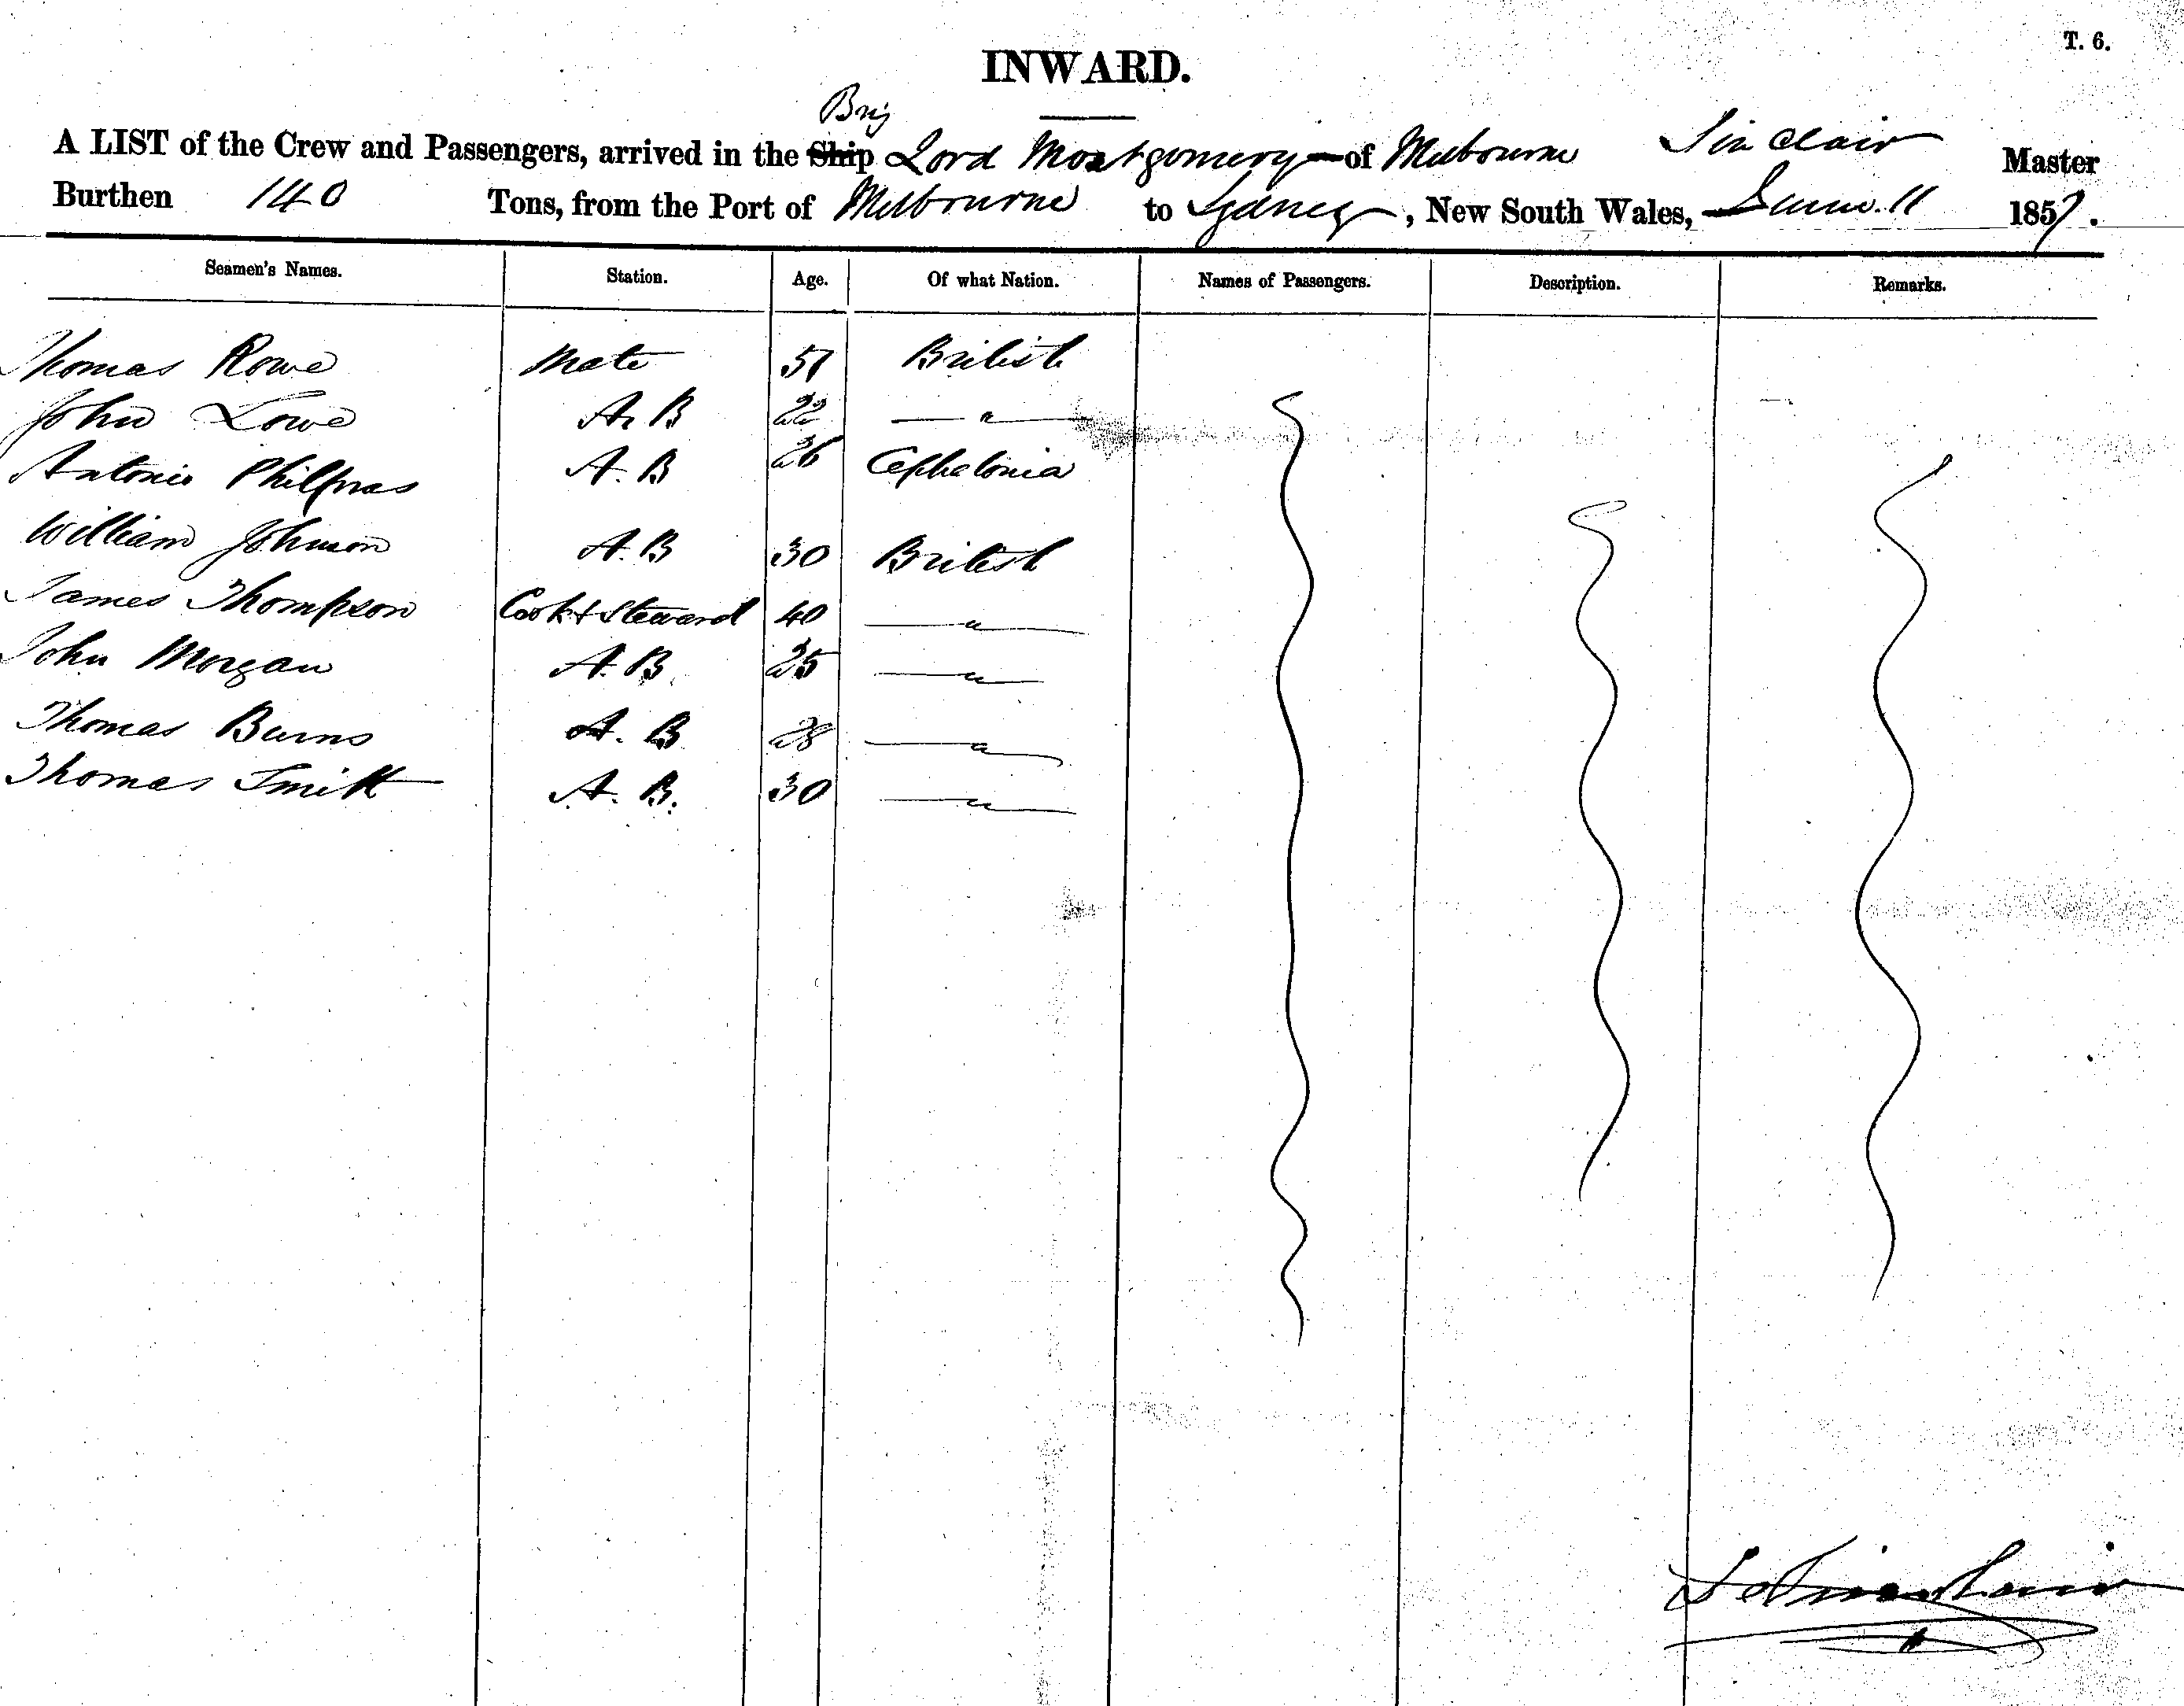 T. 6.
INWARD.
Brig
A LIST of the Crew and Passengers, arrived in the Ship Lord Montgomery of Melbourne Sinclair Master
Burthen 140 Tons, from the Port of Melbourne to Sydney, New South Wales, June 11 1857.
Seamen's Names. Station. Age. Of what Nation. Names of Passengers. Description. Remarks.
Thomas Rowe Mate 51 British
John Lowe A. B 22 — " —
Antonio A. B 26 Cephelonia
William Johnson A. B 30 British
James Thompson Cook & Steward 40 — " —
John Morgan A. B. 25 — " —
Thomas Burns A. B 28 — " —
Thomas Smith A. B. 30 — " —